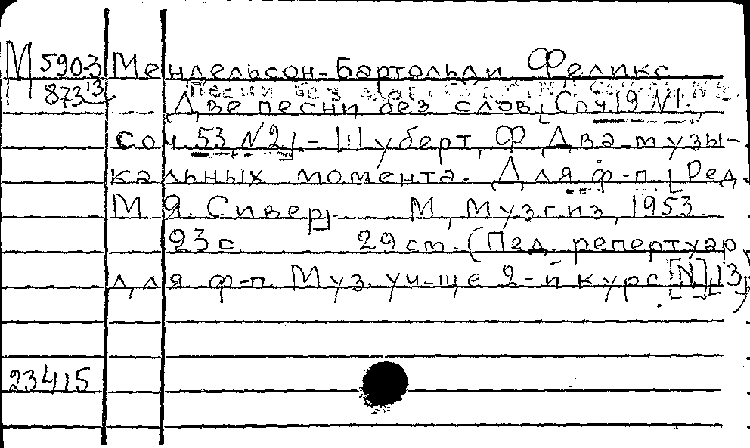 М 5903 Мендельсон-Бартольди Феликс
873 13 Песни без слов
Две песни без слов, Соч. 19 N1.,
соч. 53, N2]. - Шуберт, Ф. Два музы-
кальных момента. Для ф-п. [Ред.
М. Я. Сивер]. М., Музгиз, 1953
23 с. 29 см. (Пед. репертуар
для ф-п. Муз. уч-ще 2-й курс [N] 13)
23415